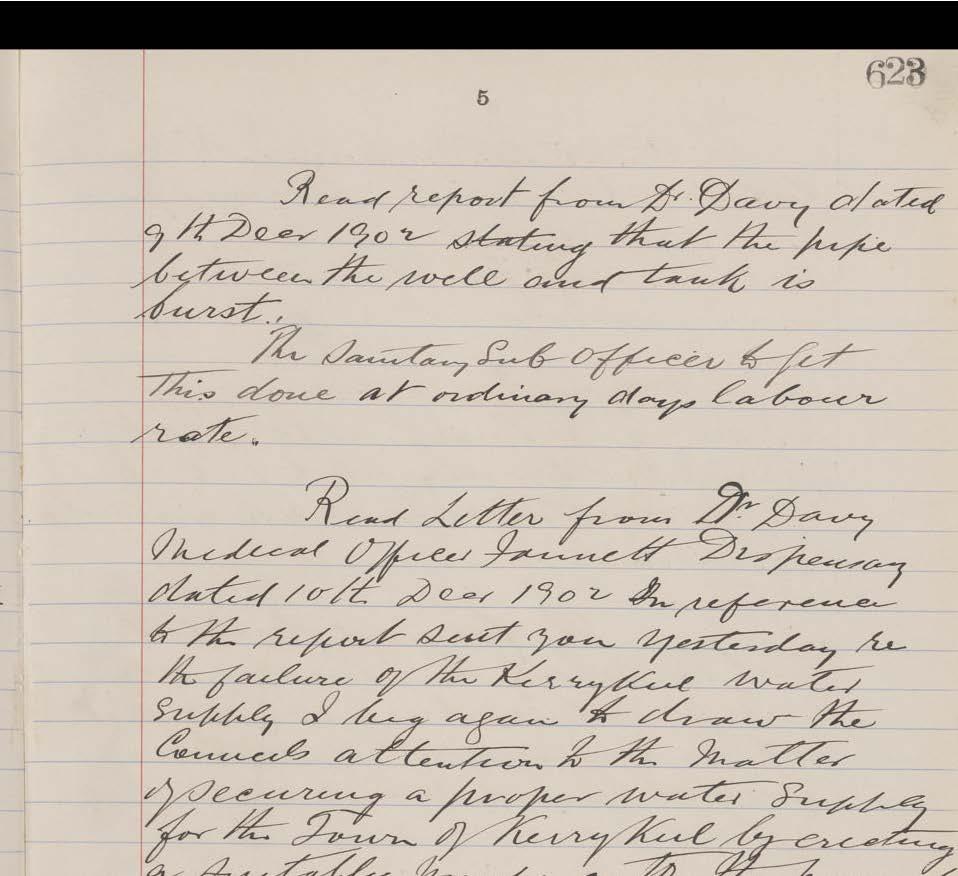 623
5
Read report from Dr. Davy dated
9th Decr 1902 stating that the pipe
between the well and tank is
burst.
The Sanitary Sub Officer to get
this done at ordinary days labour
rate.
Read Letter from Dr Davy
Medical Officer Dispensary
dated 10th Decr 1902 In reference
to the report sent you yesterday re
the failure of the Kesrykeel water
Supply I beg again to draw the
Councils attention to the Matter
of securing a proper water Supply
for the Town of Kerrykeel by erecting
a suitable to the